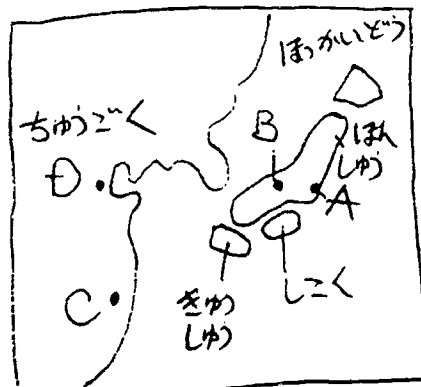 ほっかいどう
ちゅうごく
B
ほん
しゅう
D
A
C
きゅう
しゅう
しこく